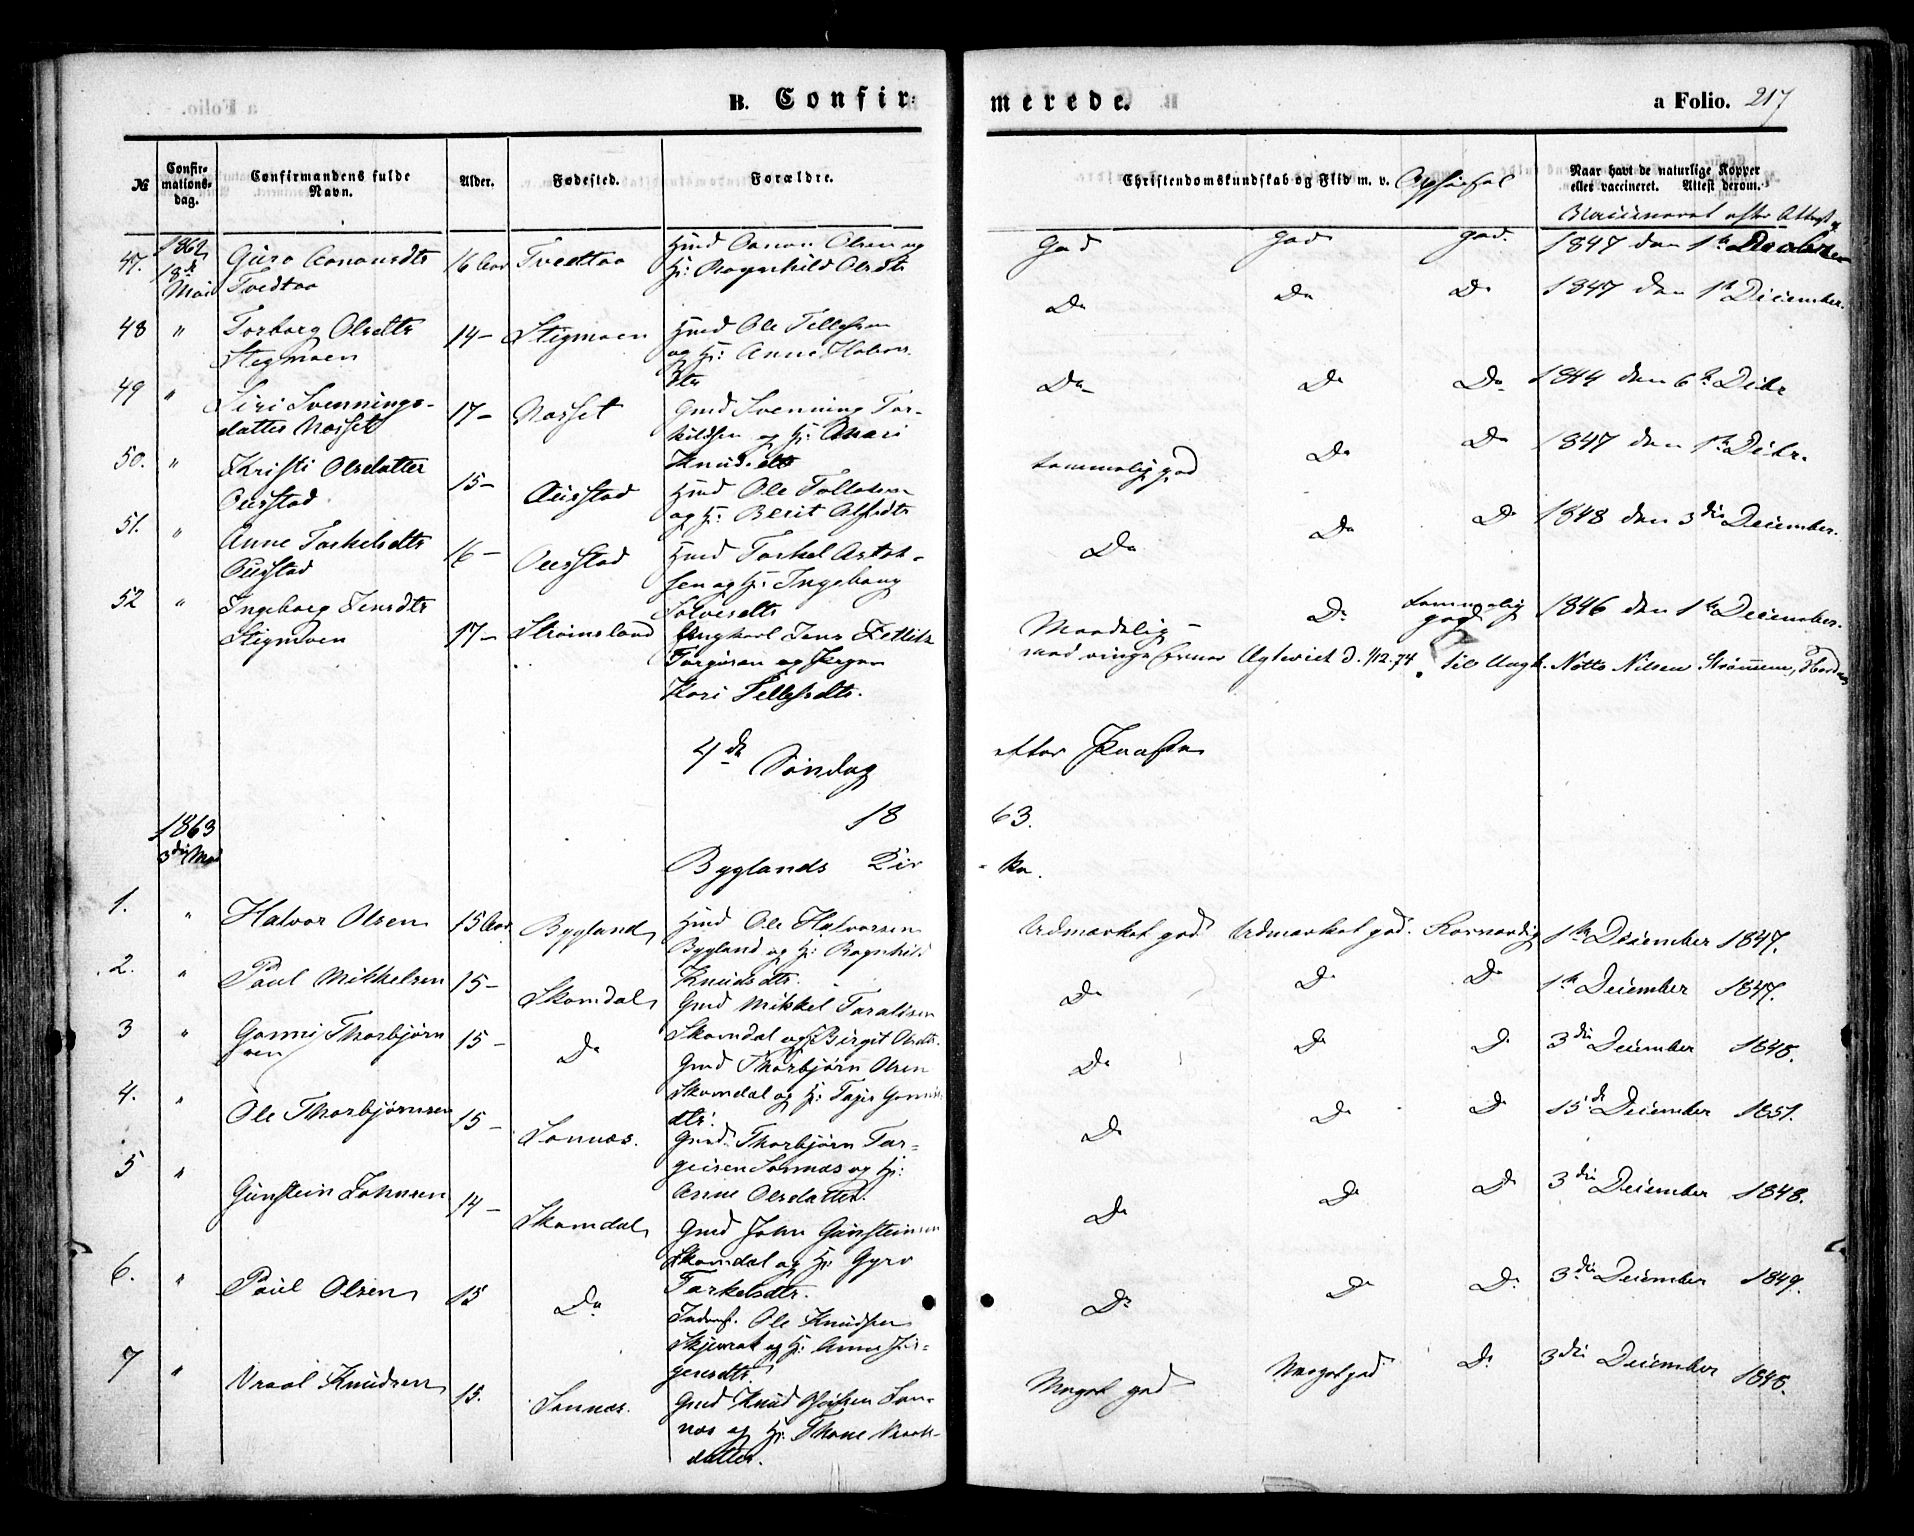 a Folio.
B. Confir-
merede.
a Folio. 217
№
Confir-
mations-
dag.
Confirmandens fulde
Navn.
Alder.
Fødested.
Forældre.
Christendomskundskab og Flid m. v. Opførsel
Naar havt de naturlige Kopper
eller vaccineret. Attest derom.
Vaccineret efter Attest af
47.
1862
18de
Mai
Guro Aanundsdtr
Tvedtaa
16 Aar
Tvedtaa
Hmd Aanon Olsen og
H: Ragnhild Olsdtr
God
god
god.
1847 den 1te December
48
"
Torborg Olsdtr
Stigmoen
14-
Stigmoen
Hmd Ole Tellefsen
og H: Anne Halvors
dtr
Do
Do
Do
1847 den 1te December.
49
"
Siri Svennings-
datter Næsset
17-
Næsset
Gmd Svenning Tor-
kildsen og H: Mari
Knudsdtr
Do
Do
Do
1844 den 6te Decbr
50.
"
Kristi Olsdatter
Ousstad
15-
Ousstad
Hmd Ole Tollefsen
og H: Berit Olsdtr
temmelig god
Do
Do
1847 den 1te Decbr.
51.
"
Anne Torkelsdtr
Ousstad
16-
Ousstad
Hmd Torkel
sen og H: Ingeborg
Solvesdtr
Do
Do
Do
1848 den 3die December.
52
"
Ingeborg Jensdtr
Stigmoen
17-
Strømsland
Ungkarl Jens Zetlitz
Torgersen og Pigen
Kari Tellefsdtr.
Maadelig -
med ringe Evner
Do
temmelig
god
1846 den 1te December.
Agtevied d. 1/12. 74. til Ungk. Notto Nilsen
4de Søndag
efter Paaske
18
63.
1863
3die Mai
Byglands Kir
- ke.
1.
"
Halvor Olsen
15 Aar
Bygland
Hmd Ole Halvorsen
Bygland og H: Ragnhild
Knudsdtr.
Udmærket god
Udmærket god.
Roesværdig
1te December 1847.
2.
"
Paul Mikkelsen
15-
Skomdal
Gmd Mikkel Taraldsen
Skomdal og H: Birgit Olsdtr.
Do
Do
Do
1te December 1847.
3
"
Gunni Thorbjørn
sen
15-
Do
Gmd Thorbjørn Olsen
Skomdal og H: Targer Gunnis
dtr.
Do
Do
Do
3die December 1848.
4.
"
Ole Thorbjørnsen
15-
Sonnes.
Gmd. Thorbjørn Tar-
geirsen Sonnes og H:
Anne Olsdatter.
Do
Do
Do
15de December 1851.
5
"
Gunstein Johnsen
14-
Skomdal
Gmd John Gunsteinsen
Skomdal og H: Gyro
Tarkelsdtr.
Do
Do
Do
3die December 1848.
6.
"
Paul Olsen
15
Do
Inderst. Ole Knudsen
Skjevrak og H: Anne Jør-
gensdtr.
Do
Do
Do.
3die December 1849.
7
"
Vraal Knudsen
15.
Sonnes.
Gmd Knud Sen-
nes og H: Thone Vraals-
datter.
Meget god
Meget god
Do
3die December 1848.